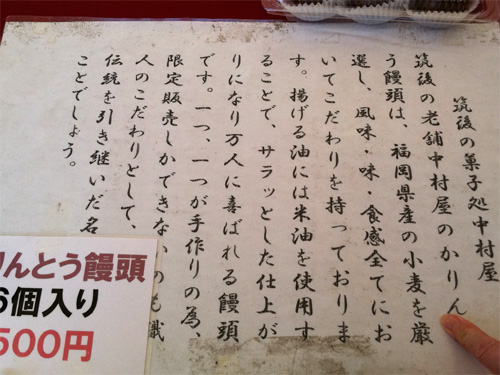 筑後の菓子処中村屋
筑後の老舗中村屋のかりん
う饅頭は、福岡県産の小麦を厳
選し、風味・味・食感全てにお
いてこだわりを持っておりま
す。揚げる油には米油を使用す
ることで、サラッとした仕上が
りになり万人に喜ばれる饅頭
です。一つ、一つが手作りの為、
限定販売しかできない のも職
人のこだわりとして、
伝統を引き継いだ名
ことでしょう。
りんとう饅頭
6個入り
500円